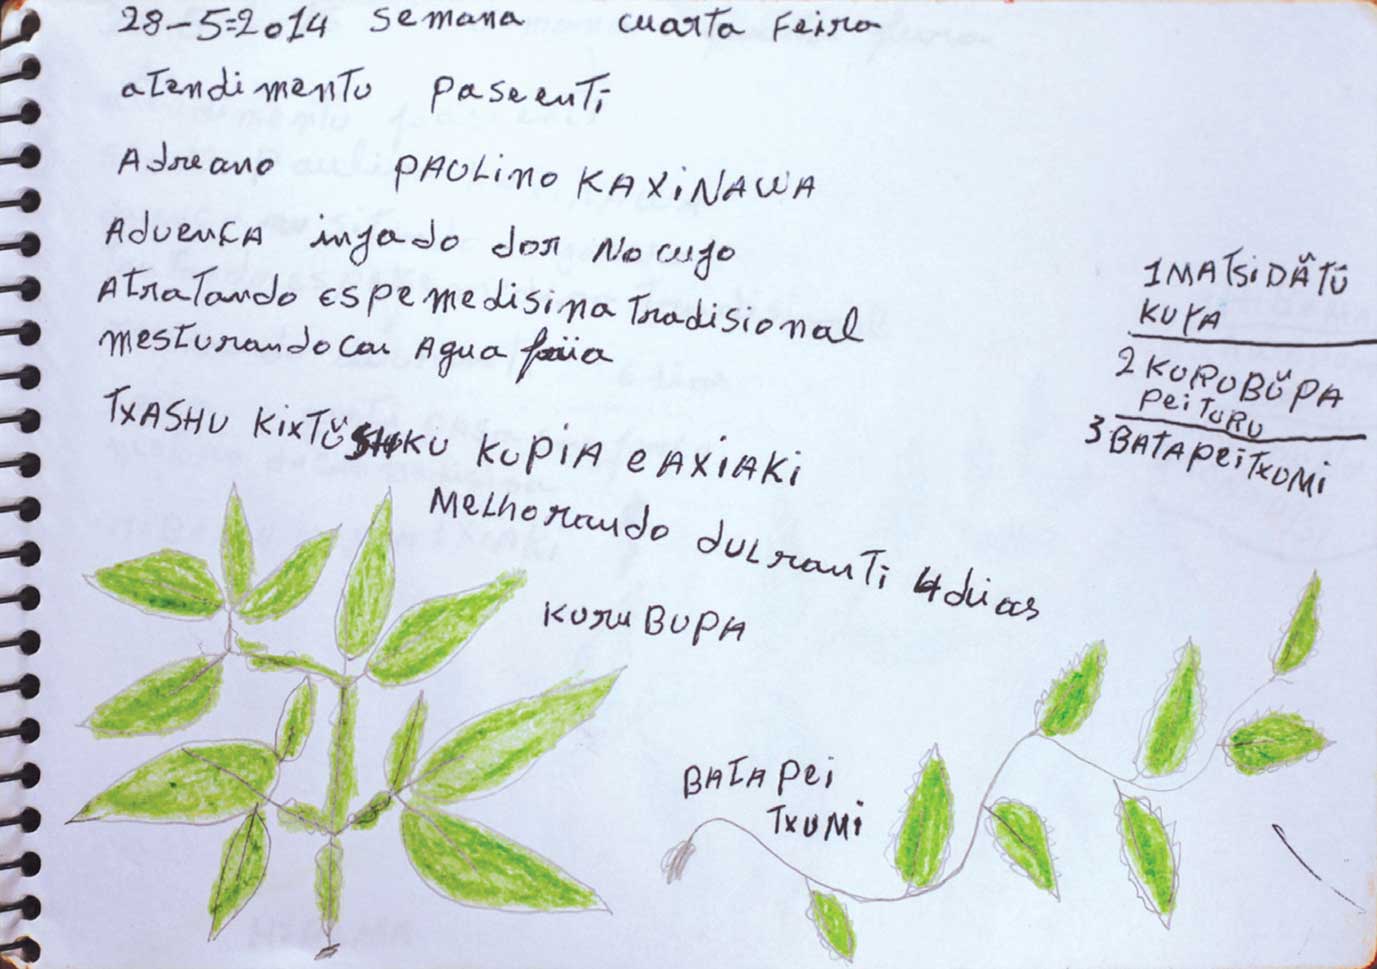 28-5=2014 semana cuarta Feira
atendimento Paseenti
Adreano PAULino KAXiNAWA
ADuença injado dor No cugo
Atratando espe medisina tradisional
mesturando cou Agua faiia
TXASHU KiXTŬ SHUKU KUPiA e AXiAKi
Melhorando dulranti 4 dias
KuruBUPA
BATA pei
TXUMi
1 MATSi DĂTŨ
KUYA
2 KURUBŬPA
pei TURU
3 BATApeiTXUMi